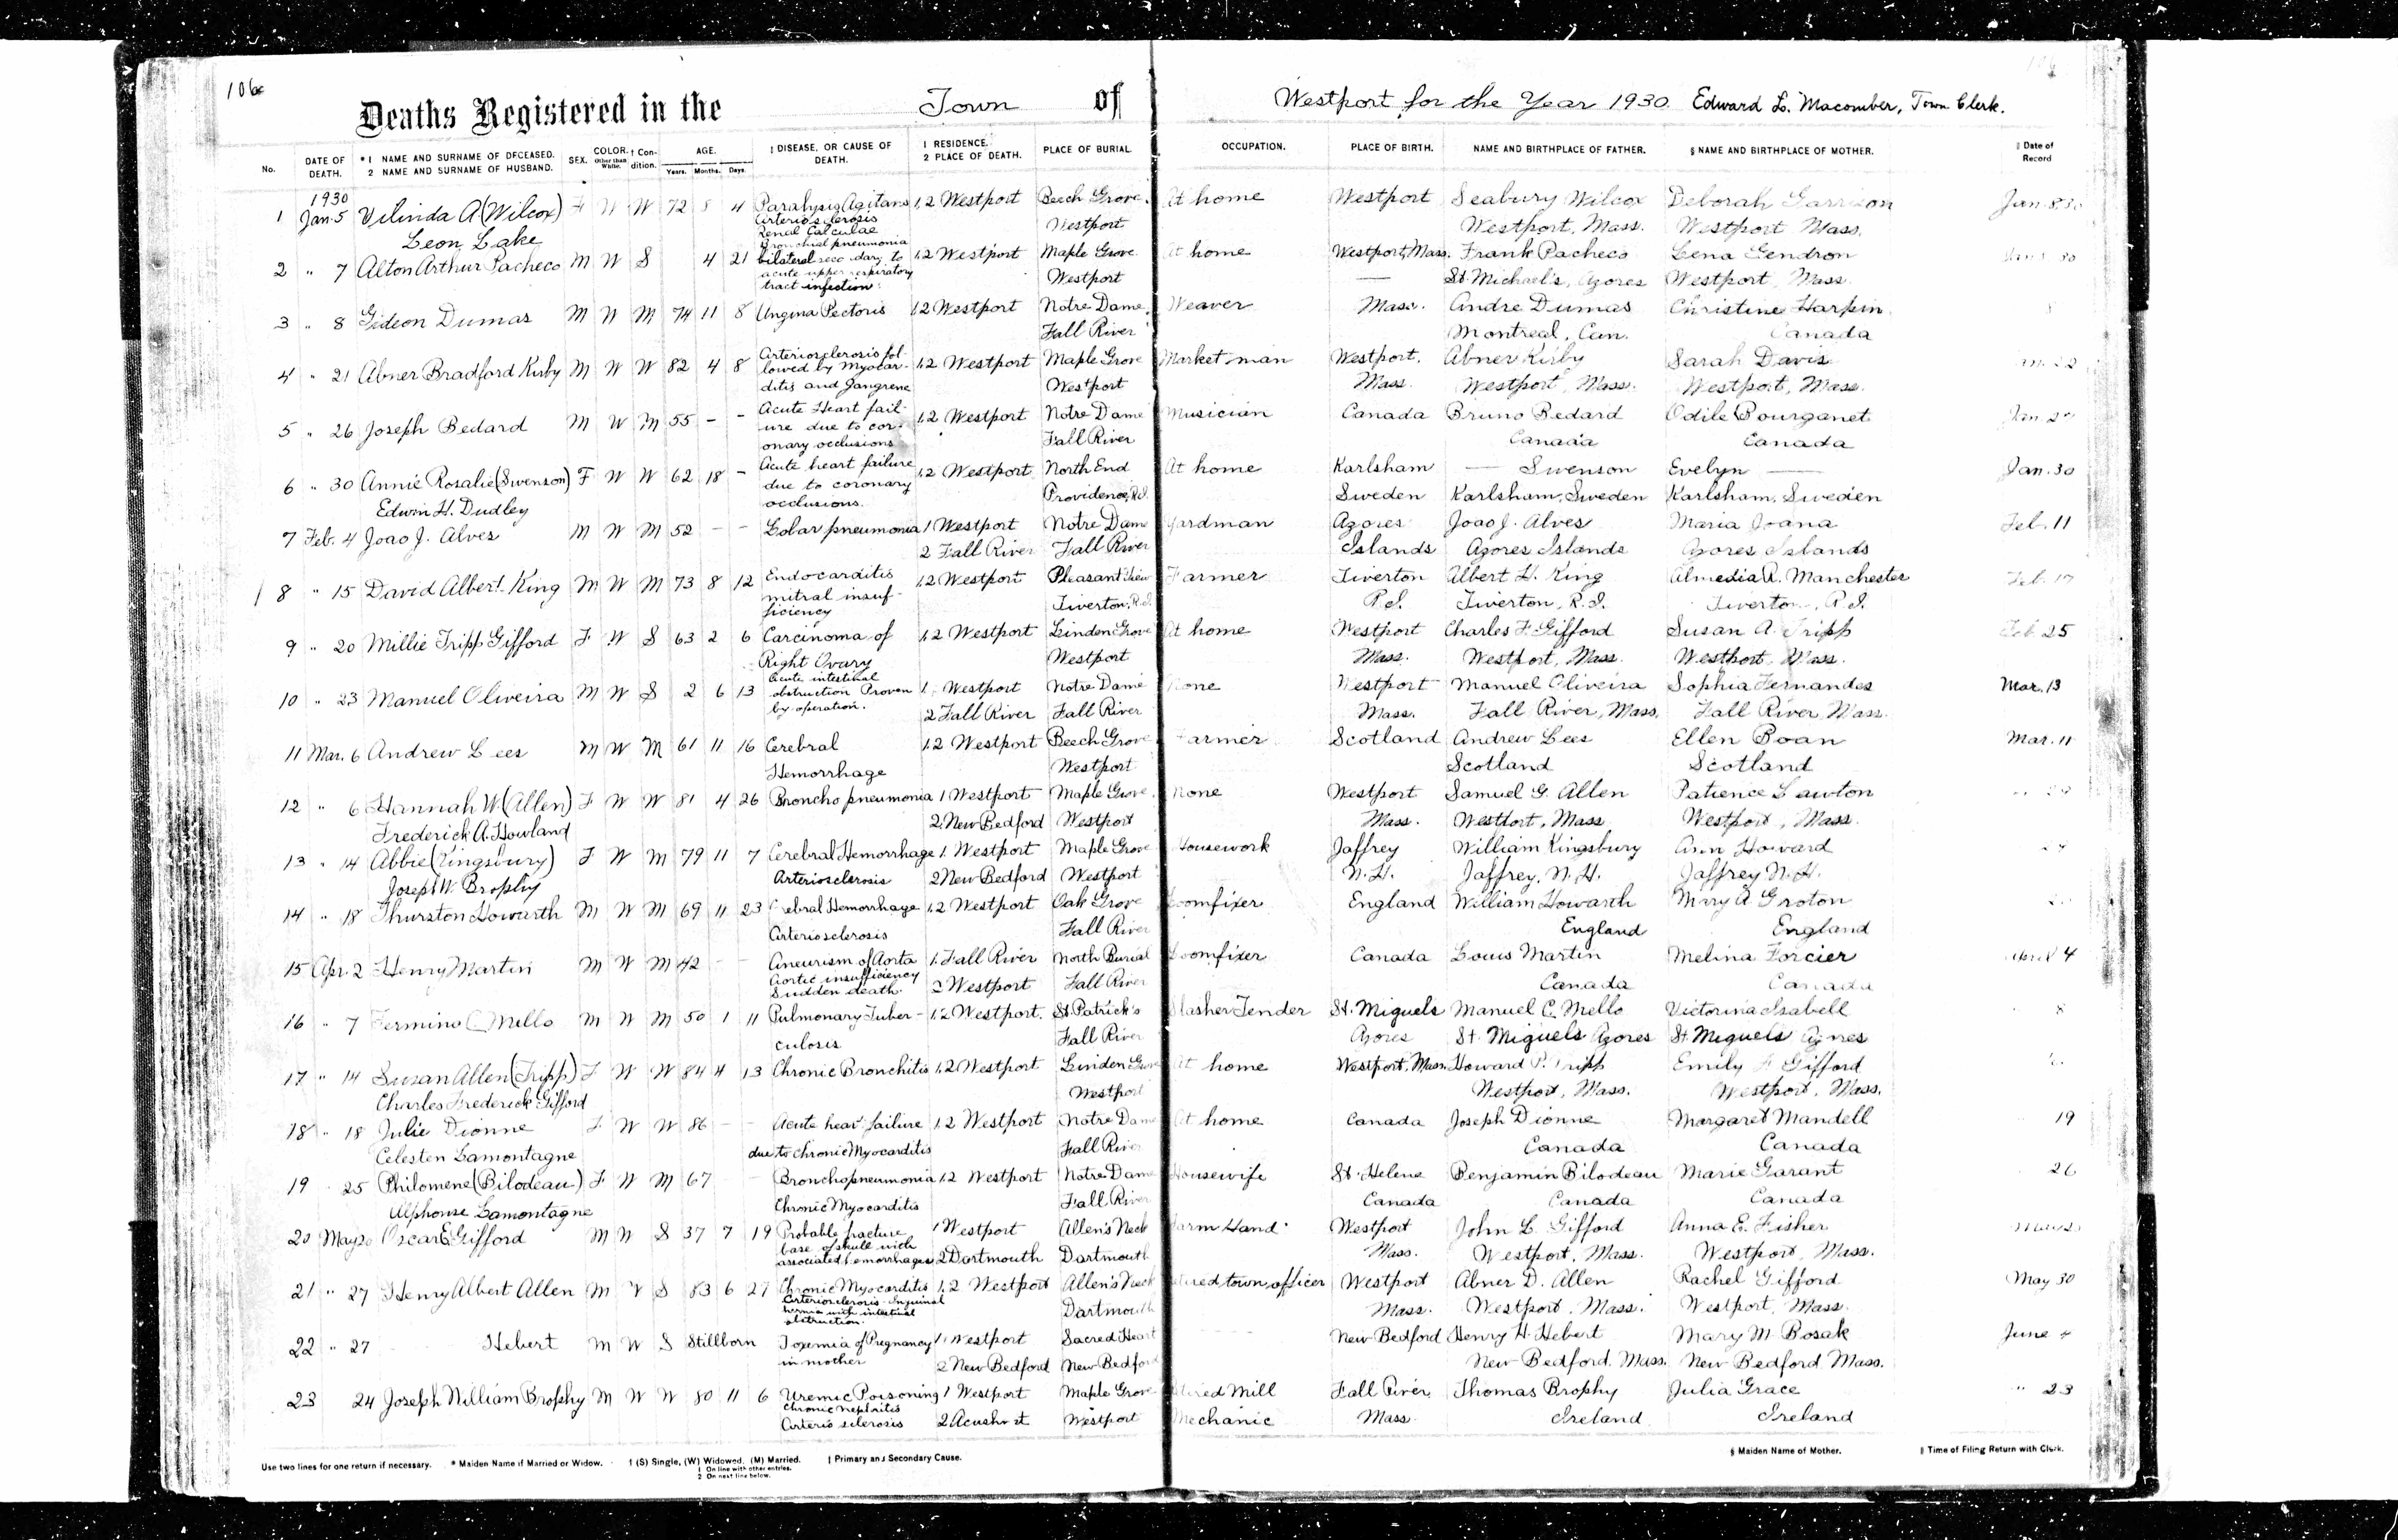 106
Deaths Registered in the Town of Westport for the Year 1930. Edward L. Macomber, Town Clerk.
No. DATE OF DEATH. * 1 NAME AND SURNAME OF DECEASED. 2 NAME AND SURNAME OF HUSBAND. SEX. COLOR. Other than White. † Condition. AGE. Years. Months. Days. ‡ DISEASE, OR CAUSE OF DEATH. 1 RESIDENCE. 2 PLACE OF DEATH. PLACE OF BURIAL. OCCUPATION. PLACE OF BIRTH. NAME AND BIRTHPLACE OF FATHER. § NAME AND BIRTHPLACE OF MOTHER. ‖ Date of Record
1930
1 Jan. 5 Vilinda A (Wilcox) F W W 72 8 4 Paralysis Agitans 1,2 Westport Beech Grove. At home Westport Seabury Wilcox Deborah Garrison Jan. 8
Leon Lake Arteriosclerosis Renal Calculae Westport Westport, Mass. Westport Mass.
2 " 7 Alton Arthur Pacheco M W S 4 21 Bronchial pneumonia bilateral secondary to 1,2 Westport Maple Grove At home Westport, Mass. Frank Pacheco Lena Gendron
acute upper respiratory tract infection. Westport — St. Michael's, Azores Westport, Mass.
3 " 8 Gideon Dumas M W M 74 11 8 Angina Pectoris 1,2 Westport Notre Dame, Weaver Mass. Andre Dumas Christine Harpin
Fall River Montreal, Can. Canada
4 " 21 Abner Bradford Kirby M W W 82 4 8 Arteriosclerosis fol- lowed by Myocar- 1,2 Westport Maple Grove Market man Westport. Abner Kirby Sarah Davis
ditis and Gangrene Westport Mass. Westport, Mass. Westport, Mass.
5 " 26 Joseph Bedard M W M 55 - - Acute Heart fail- ure due to cor- 1,2 Westport Notre Dame Musician Canada Bruno Bedard Odile Bourganet Jan.
onary occlusions Fall River Canada Canada
6 " 30 Annie Rosalie (Swenson) F W W 62 18 - Acute heart failure 1,2 Westport North End At home Karlsham — Swenson Evelyn — Jan. 30
Edwin H. Dudley due to coronary occlusions. Providence, R.I. Sweden Karlsham, Sweden Karlsham, Sweden
7 Feb. 4 Joao J. Alves M W M 52 - - Lobar pneumonia 1 Westport Notre Dame Yardman Azores Joao J. Alves Maria Joana Feb. 11
2 Fall River Fall River Islands Azores Islands Azores Islands
8 " 15 David Albert King M W M 73 8 12 Endocarditis 1,2 Westport Pleasant View Farmer Tiverton Albert H. King Almedia R. Manchester Feb. 17
mitral insuf- ficiency Tiverton, R.I. R.I. Tiverton, R.I. Tiverton, R.I.
9 " 20 Millie Tripp Gifford F W S 63 2 6 Carcinoma of 1,2 Westport Linden Grove At home Westport Charles F. Gifford Susan A. Tripp Feb 25
Right Ovary Westport Mass. Westport, Mass. Westport, Mass.
10 " 23 Manuel Oliveira M W S 2 6 13 Acute intestinal obstruction Proven 1, Westport Notre Dame None Westport Manuel Oliveira Sophia Fernandes Mar. 13
by operation. 2 Fall River Fall River Mass. Fall River, Mass. Fall River, Mass.
11 Mar. 6 Andrew Lees M W M 61 11 16 Cerebral 1,2 Westport Beech Grove Farmer Scotland Andrew Lees Ellen Boan Mar. 11
Hemorrhage Westport Scotland Scotland
12 " 6 Hannah W (Allen) F W W 81 4 26 Broncho pneumonia 1 Westport Maple Grove. None Westport Samuel G. Allen Patience Lawton
Frederick A. Howland 2. New Bedford Westport Mass. Westport, Mass Westport, Mass.
13 " 14 Abbie (Kingsbury) F W M 79 11 7 Cerebral Hemorrhage 1. Westport Maple Grove Housework Jaffrey William Kingsbury Ann Howard
Joseph W. Brophy Arteriosclerosis 2 New Bedford Westport N.H. Jaffrey, N.H. Jaffrey N.H.
14 " 18 Thurston Howarth M W M 69 11 23 Cerebral Hemorrhage 1,2 Westport Oak Grove Loomfixer England William Howarth Mary A Groton
Arteriosclerosis Fall River England England
15 Apr. 2 Henry Martin M W M 42 - - Aneurism of Aorta 1. Fall River North Burial Loomfixer Canada Louis Martin Melina Forcier April 4
Aortic insufficiency Sudden death. 2 Westport Fall River Canada Canada
16 " 7 Fermino C Mello M W M 50 1 11 Pulmonary Tuber- 1,2 Westport. St. Patrick's Slasher Tender St. Miguels Manuel C. Mello Victorina Isabell 8
culosis Fall River Azores St. Miguels Azores St. Miguels Azores
17 " 14 Susan Allen (Tripp) F W W 84 4 13 Chronic Bronchitis 1,2 Westport Linden Grove At home Westport, Mass. Howard P. Tripp Emily Gifford
Charles Frederick Gifford Westport Westport, Mass. Westport, Mass.
18 " 18 Julie Dionne F W W 86 - - Acute heart failure 1,2 Westport Notre Dame At home Canada Joseph Dionne Margaret Mandell 19
Celesten Lamontagne due to Chronic Myocarditis Fall River Canada Canada
19 " 25 Philomene (Bilodeau) F W M 67 Bronchopneumonia 1,2 Westport Notre Dame Housewife St. Helene Benjamin Bilodeau Marie Garant 26
Alphonse Lamontagne Chronic Myocarditis Fall River Canada Canada Canada
20 May 20 Oscar E Gifford M W S 37 7 19 Probable fracture 1 Westport Allen's Neck Farm Hand Westport John L. Gifford Anna E. Fisher
base of skull with associated hemorrhages 2 Dartmouth Dartmouth Mass. Westport, Mass. Westport, Mass.
21 " 27 Henry Albert Allen M W S 83 6 27 Chronic Myocarditis 1,2 Westport Allen's Neck Retired town officer Westport Abner D. Allen Rachel Gifford May 30
Arteriosclerosis Inguinal hernia with intestinal obstruction. Dartmouth Mass. Westport, Mass. Westport, Mass.
22 " 27 Hebert M W S Stillborn Toxemia of Pregnancy 1. Westport Sacred Heart New Bedford Henry H. Hebert Mary M. Bosak June
in mother 2 New Bedford New Bedford New Bedford, Mass. New Bedford, Mass.
23 24 Joseph William Brophy M W W 80 11 6 Uremic Poisoning 1 Westport Maple Grove Retired Mill Fall River, Thomas Brophy Julia Grace " 23
Chronic Nephritis Arterio sclerosis 2 Acushnet Westport Mechanic Mass. Ireland Ireland
Use two lines for one return if necessary. * Maiden Name if Married or Widow. † (S) Single, (W) Widowed, (M) Married. ‡ Primary and Secondary Cause. § Maiden Name of Mother. ‖ Time of Filing Return with Clerk.
1 On line with other entries.
2 On next line below.